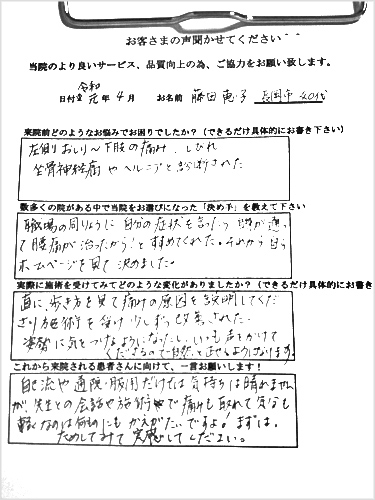 お客さまの声聞かせてください^^
当院のより良いサービス、品質向上の為、ご協力をお願い致します。
日付 令和 元年 4月 お名前 藤田 恵子 長岡市 40代
来院前どのようなお悩みでお困りでしたか？（できるだけ具体的にお書き下さい）
左側おしり～下肢の痛み、しびれ
坐骨神経痛やヘルニアと診断された
数多くの院がある中で当院をお選びになった「決め手」を教えて下さい
職場の同じように自分の症状を言ったら 誰が通っ
て腰痛が治ったから！とすすめてくれた。それから自ら
ホームページを見て決めました。
実際に施術を受けてみてどのような変化がありましたか？（できるだけ具体的にお書き
直に、歩き方を見て痛みの原因を説明してくだ
さり施術を受け 少しずつ改善された。
姿勢に気をつけるようになったし、いつも声をかけて
くださるので自然と正せるようになります。
これから来院される患者さんに向けて、一言お願いします！
自己流や通院・服用だけでは気持ちは晴れません
が、先生との会話や施術で痛みも取れて気分も
軽くなるのは何ものにもかえがたいですよ！まずは、
ためしてみて実感してください。